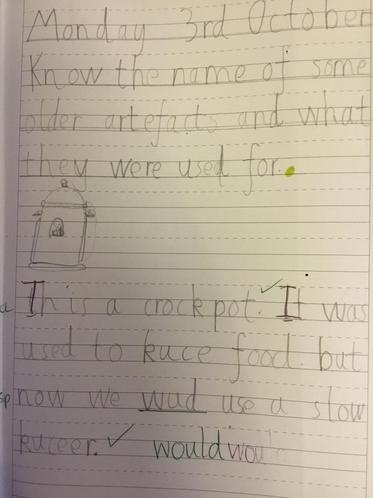 Monday 3rd October
Know the name of some
older artefacts and what
they were used for.
This is a crock pot. It was
used to kuce food. but
sp now we wud use a slow
kuceer. would wou